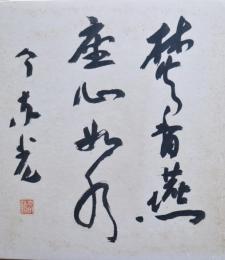 焚香燕
座心如水
今東光